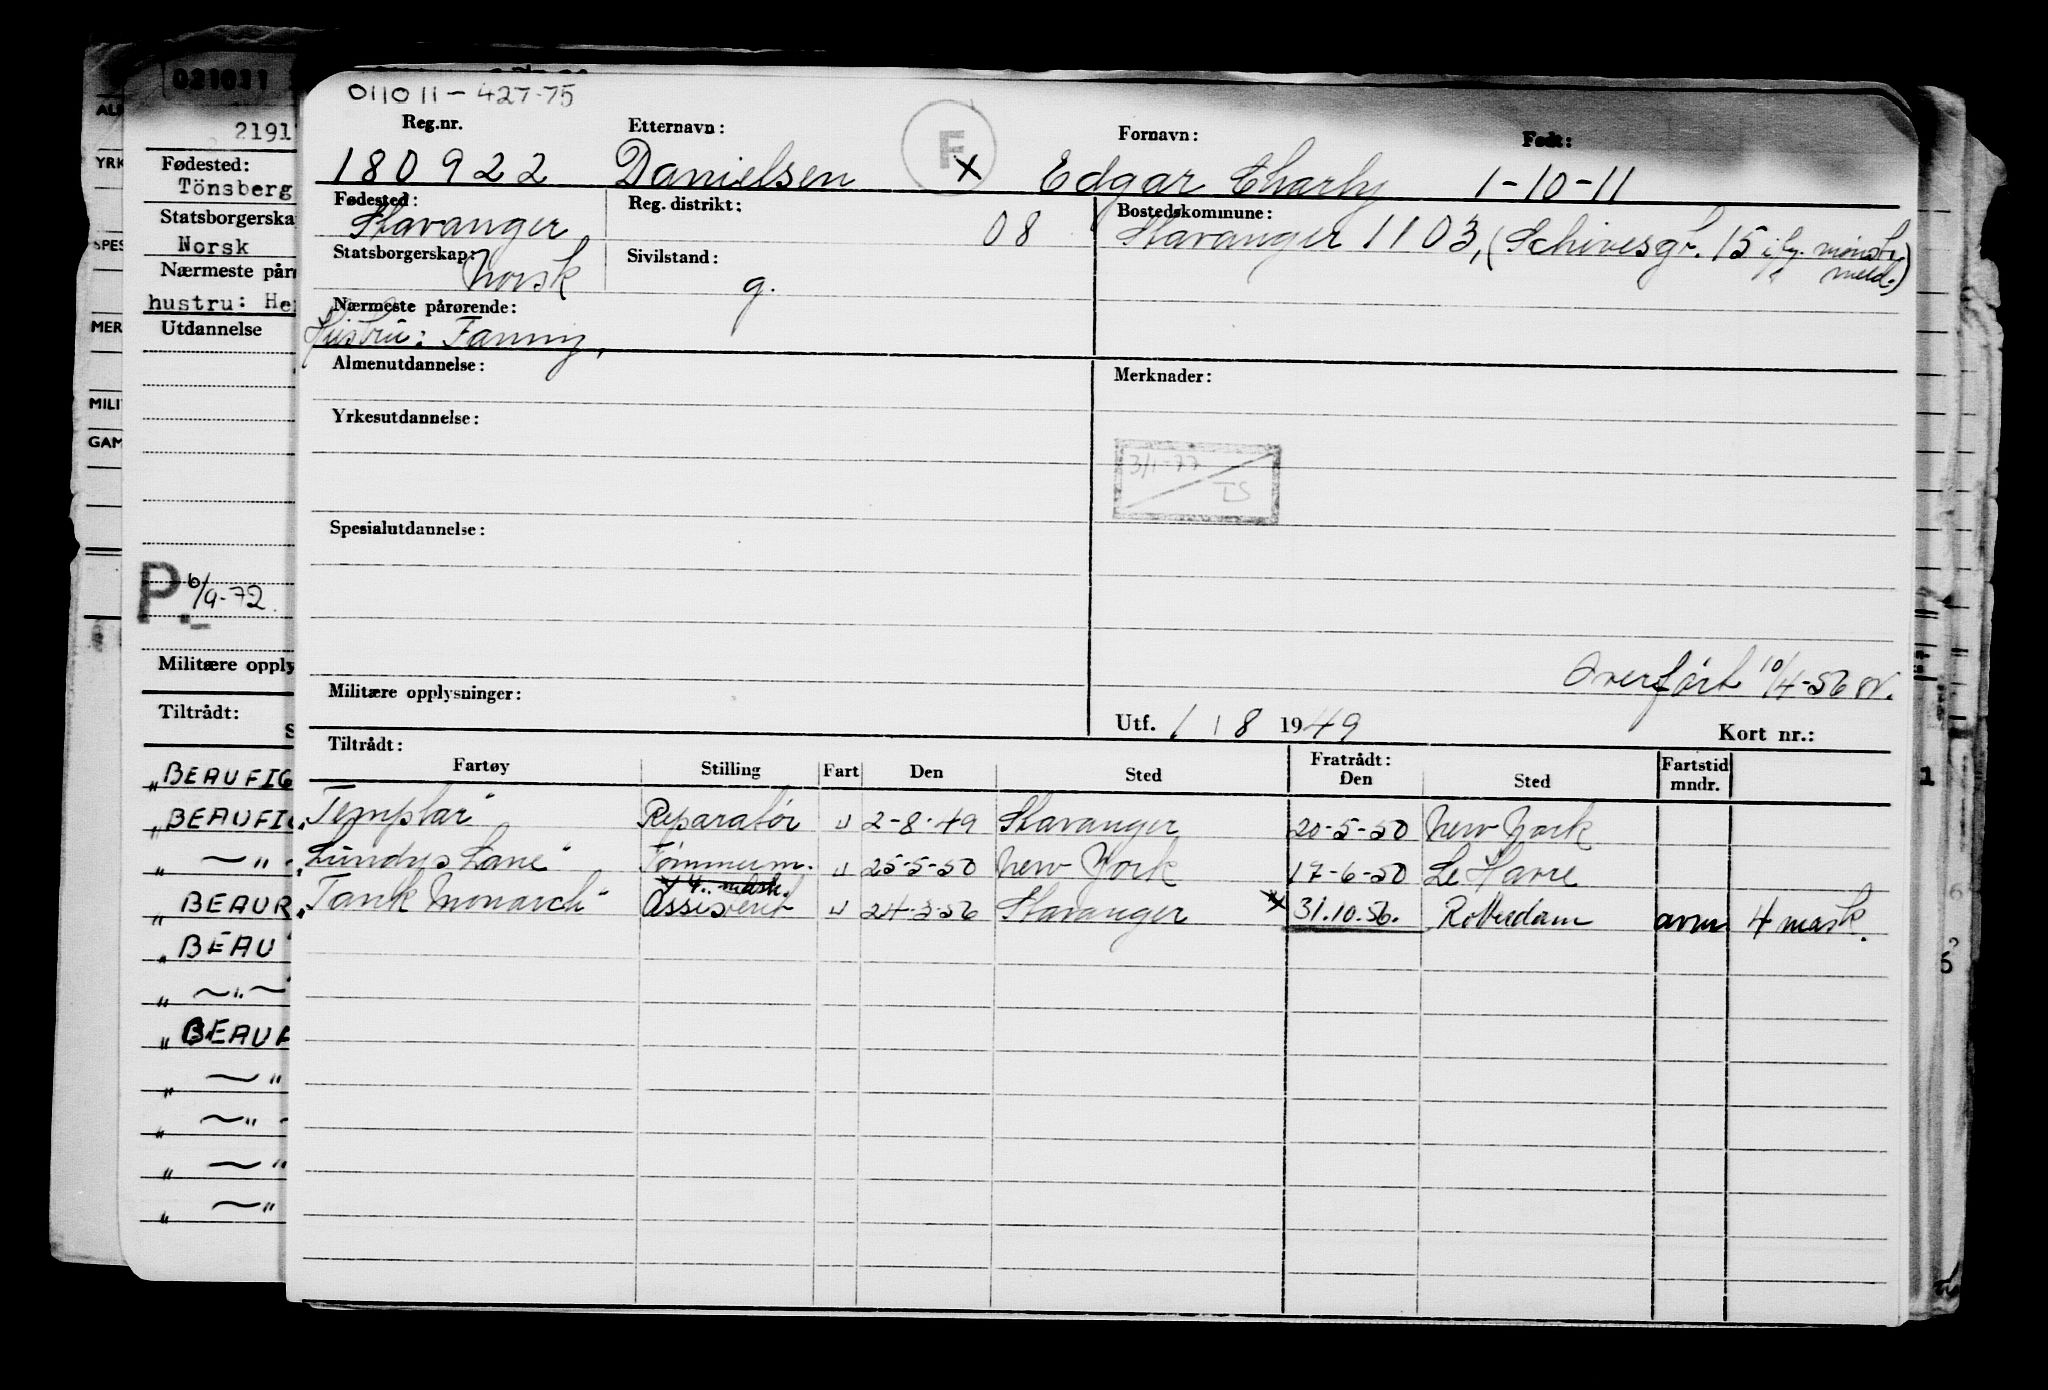 021011
011011 - 427-75
2191
Reg.nr. Etternavn: F Fornavn: Født:
180922 Danielsen x Edgar Charly 1-10-11
Fødested: Reg. distrikt: Bostedskommune:
Stavanger 08 Stavanger 1103, (Schivesgt. 15 iflg. mønstr. meld.)
Statsborgerskap: Norsk Sivilstand: g.
Nærmeste pårørende:
Hustru: Fanny,
Almenutdannelse: Merknader:
Yrkesutdannelse:
3/1-77
IS
Spesialutdannelse:
Overført 10/4-56
Militære opplysninger:
Utf. 1 / 8 1949 Kort nr.:
Tiltrådt: Fratrådt: Fartstid
Fartøy Stilling Fart Den Sted Den Sted mndr.
"Templar" Reparatør u 2-8-49 Stavanger 20-5-50 New York
"Lundys Lane" Tømmerm. u 25-5-50 New York 17-6-50 Le Havre
x 4. mask.
"Tank Monarch" Assistent u 24-3-56 Stavanger x 31.10.56. Rotterdam avm 4 mask.
Fødested:
Tönsberg
Statsborgerska
Norsk
Nærmeste pår
hustru: He
Utdannelse
P. 6/9-72
Militære opply
Tiltrådt:
S
"BEAUFIG
"BEAUFI
" — " —
" BEAUR
" BEAU
" — " —
" BEAUF
" — "
" — " —
" — "
" — "
YRK
SPES
MER
MILI
GAM
1
6